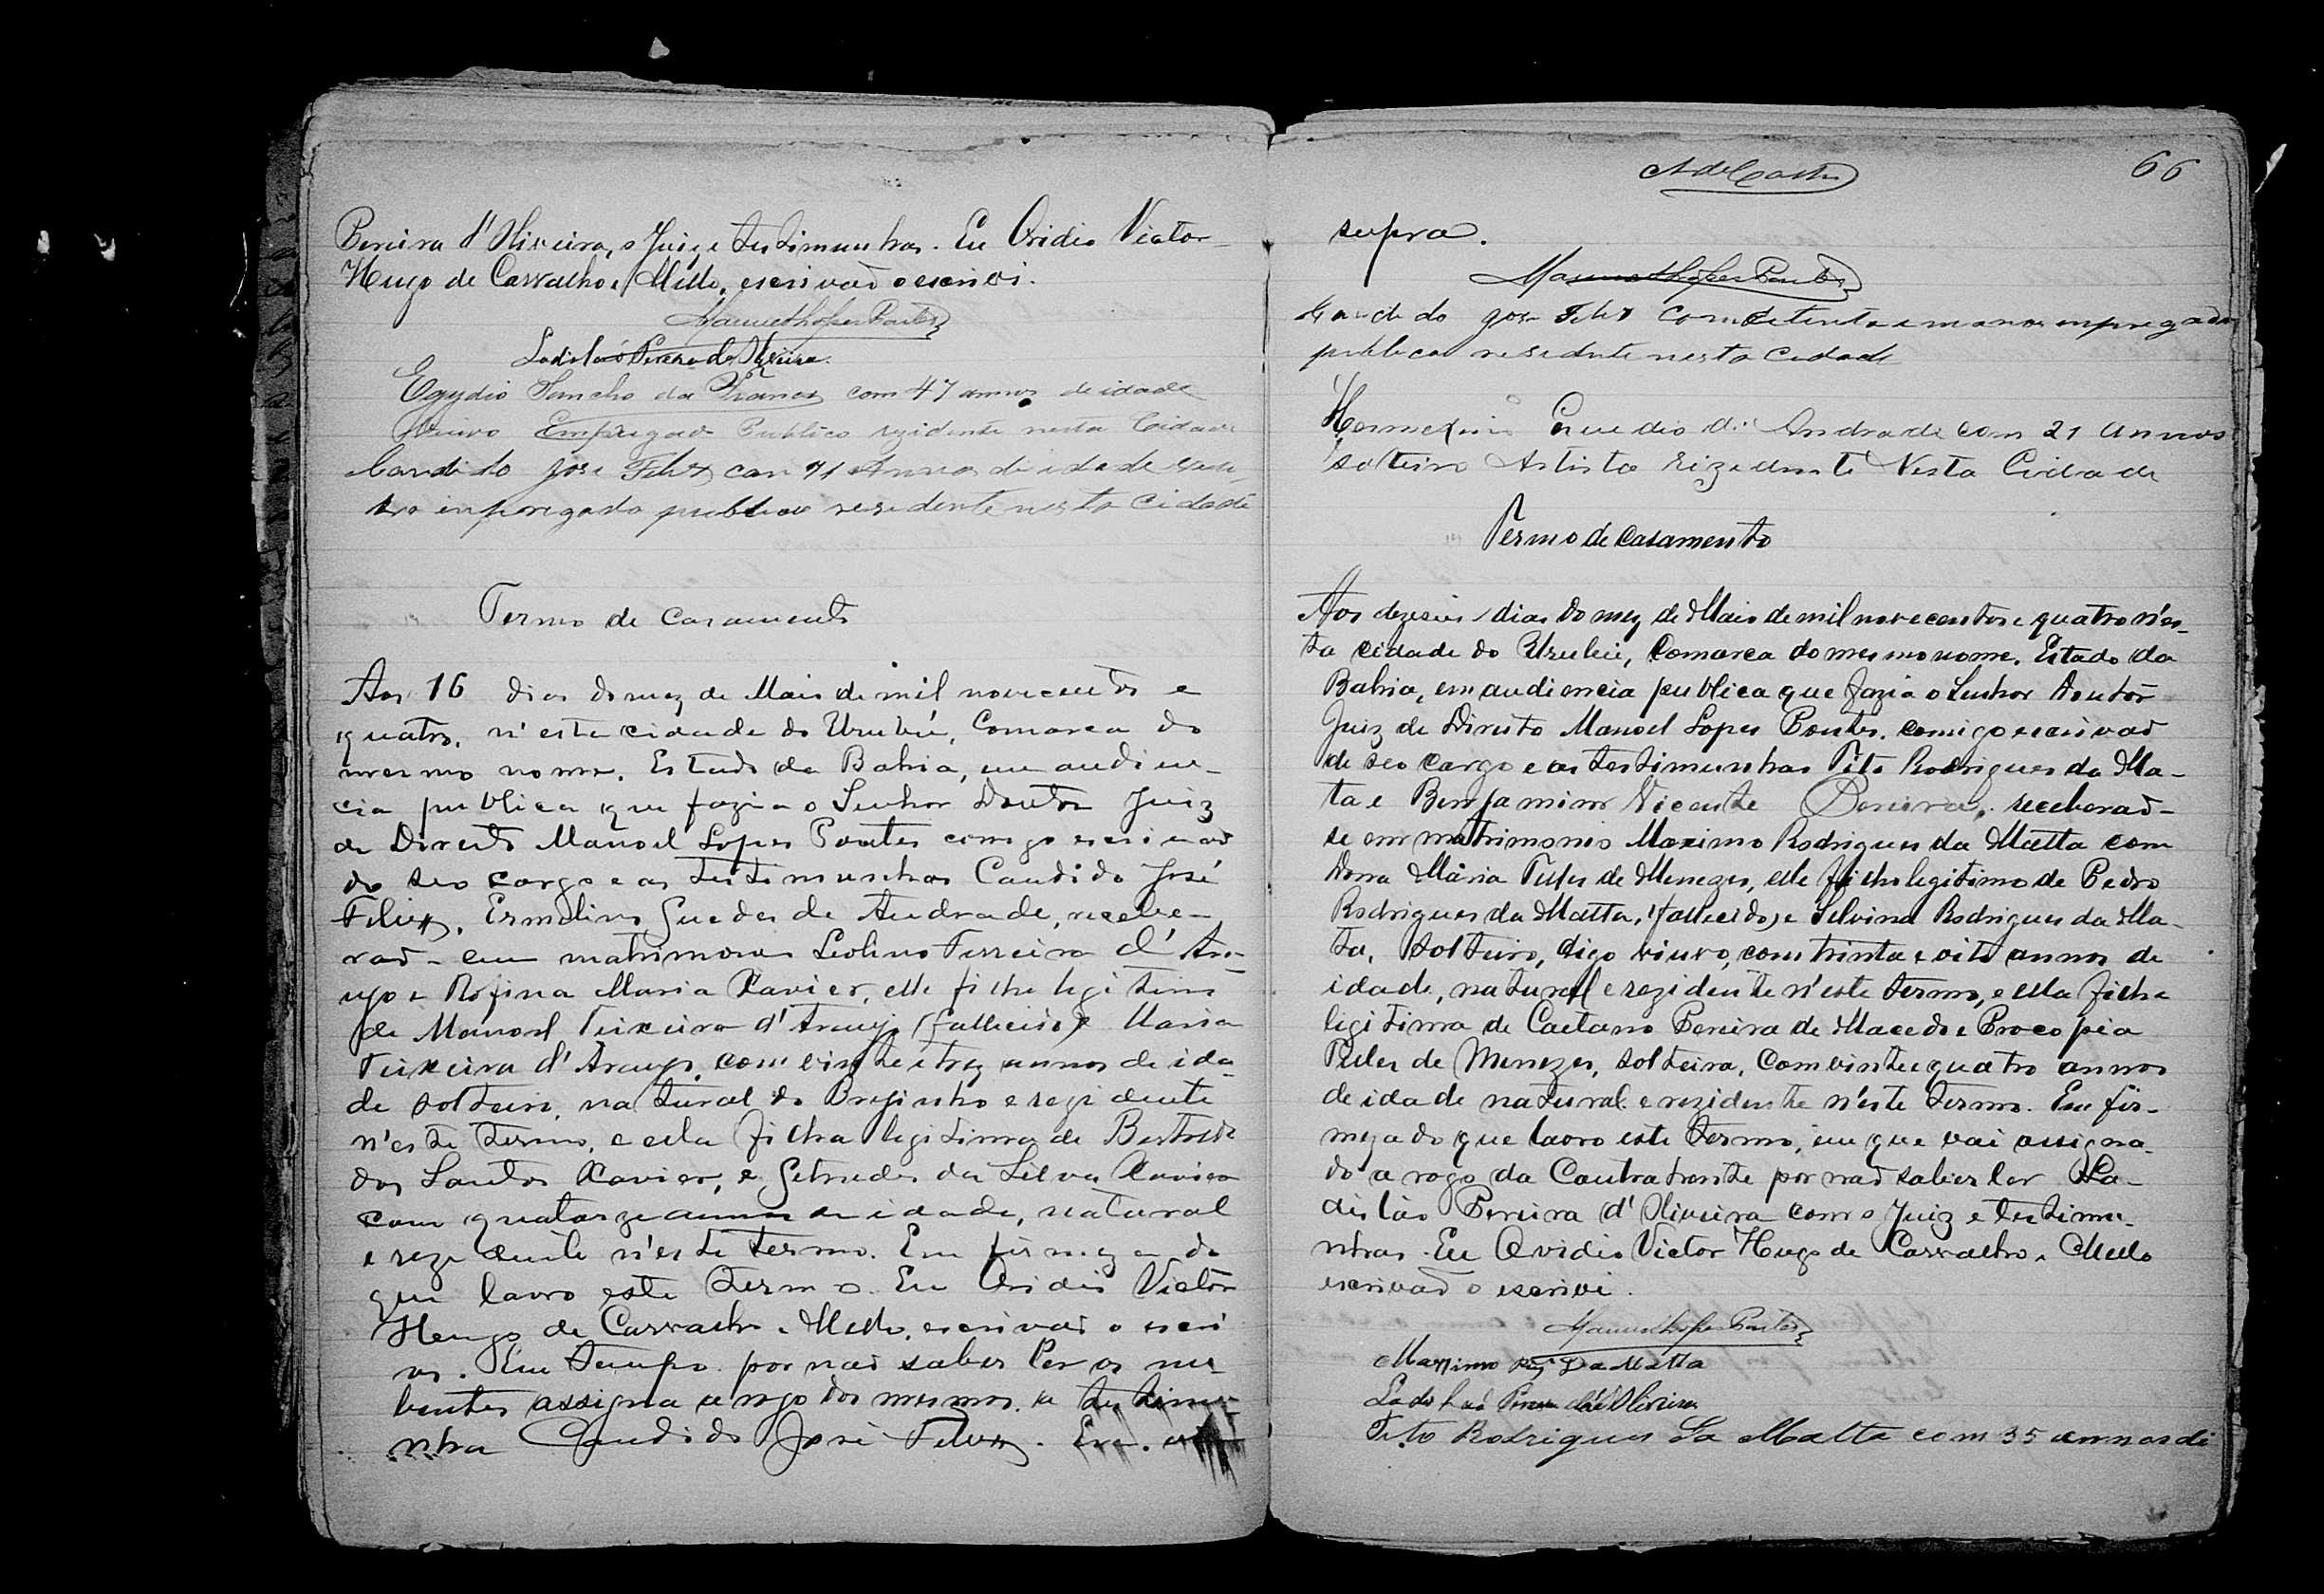 Pereira d'Oliveira, o Juiz e testimunhas. Eu Ovidio Victor
Hugo de Carvalho e Mello, escrivaõ o escrivi.
Manuel Lopes Pontes
Ladislaõ Pereira de Oliveira
Egydio Sancho da França com 47 annos de idade
Viuvo Empregado Publico rezidente nesta Cidade
Candido José Felix com 71 Annos de idade
empregado publico residente nesta Cidade
Termo de Casamento
Aos 16 dias do mez de Maio de mil novecentos e
quatro, n'esta cidade do Urubú, Comarca do
mesmo nome, Estado da Bahia, em audien-
cia publica que fazia o Senhor Doutor Juiz
de Direito Manoel Lopes Pontes comigo escrivaõ
do seo cargo e as testimunhas Candido José
Felix, Ermelino Guedes de Andrade, recebe-
raõ-se em matrimonio Leolino Teixeira d'Arau-
jo e Rofina Maria Xavier, elle filho legitimo
de Manoel Teixeira d'Araujo (fallecido) e Maria
Teixeira d'Araujo, com vinte e trez annos de ida-
de solteiro, natural do Brejinho e rezidente
n'este termo, e ella filha legitima de
dos Santos Xavier, e Getrudes da Silva Xavier
com quatorze annos de idade, natural
e rezidente n'este termo. Em firmeza do
que lavro este termo. Eu Ovidio Victor
Hugo de Carvalho e Mello, escrivaõ o escri
vi. Em tempo por naõ saber ler os nu-
bentes assigna a rogo dos mesmos a testimu-
nha Candido José Felix. Era.
A de Castro
66
supra.
Manuel Lopes Pontes
Candido José Felix com setenta e annos empregado
publico residente nesta Cidade
Hermelino Guedes de Andrade com 21 annos
solteiro Artista rizidente Nesta Cidade
Termo de Casamento
Aos dezeseis dias do mez de Maio de mil novecentos e quatro n'es-
ta cidade do Urubú, Comarca do mesmo nome, Estado da
Bahia, em audiencia publica que fazia o Senhor Doutor
Juiz de Direito Manoel Lopes Pontes, comigo escrivaõ
de seo cargo e as testimunhas Tito Rodrigues da Ma-
ta e Benjamim Vicente Pereira, receberaõ-
se em matrimonio Maximo Rodrigues da Matta com
Dona Maria Teles de Menezes, elle filho legitimo de Pedro
Rodrigues da Matta, (fallecido) e Silvina Rodrigues da Ma-
ta, solteiro, digo viuvo, com trinta e oito annos de
idade, natural e rezidente n'este termo, e ella filha
legitima de Caetano Pereira de Macedo e Procopia
Teles de Menezes, solteira, com vinte e quatro annos
de idade natural e rezidente n'este termo. Em fir-
meza do que lavro este termo, em que vai assigna-
do a rogo da Contratante por naõ saber ler La-
dislào Pereira d'Oliveira com o Juiz e testimu-
nhas. Eu Ovidio Victor Hugo de Carvalho e Mello
escrivaõ o escrivi.
Manuel Lopes Pontes
Maximo Roiz Da Matta
Ladislaõ Pereira de Oliveira
Tito Rodrigues da Matta com 35 annos di